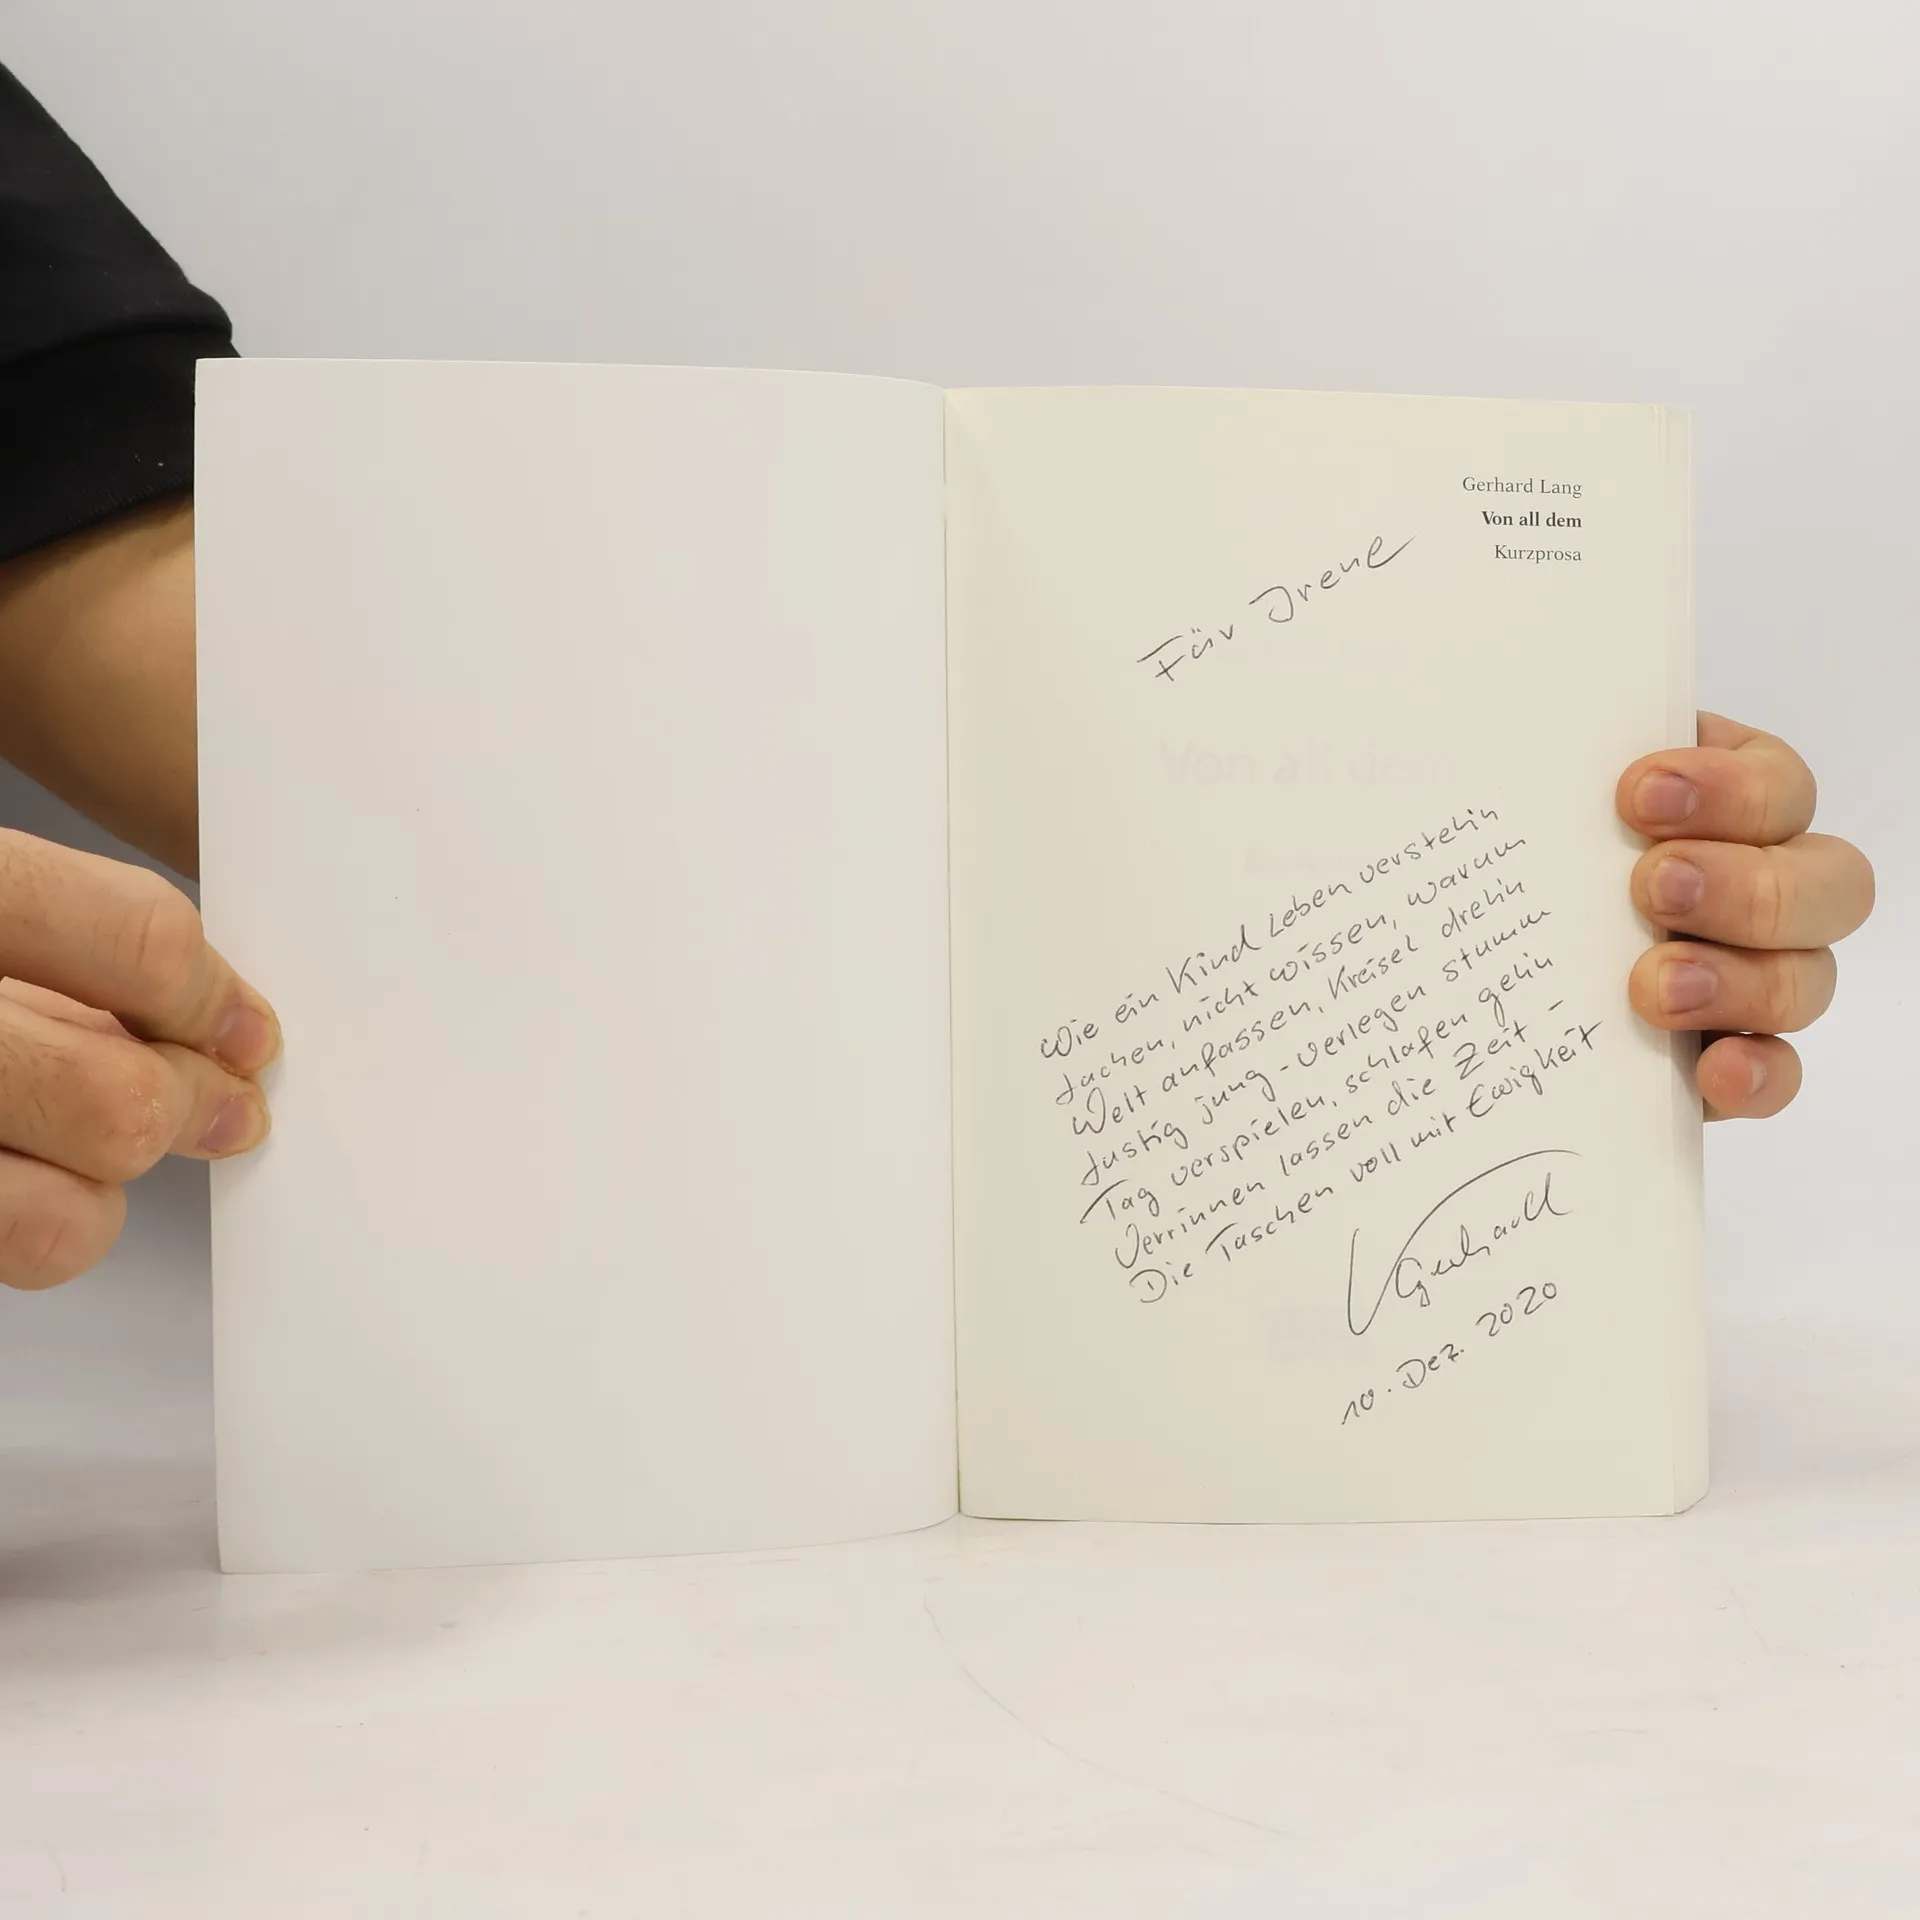 Gerhard Lang
Von all dem
Kurzprosa
Für Irene
Von all dem
Wie ein Kind Leben versteh'n
Lachen, nicht wissen, warum
Welt anfassen, Kreisel dreh'n
Lustig jung - verlegen stumm
Tag verspielen, schlafen geh'n
Verrinnen lassen die Zeit -
Die Taschen voll mit Ewigkeit
Gerhard
10. Dez. 2020